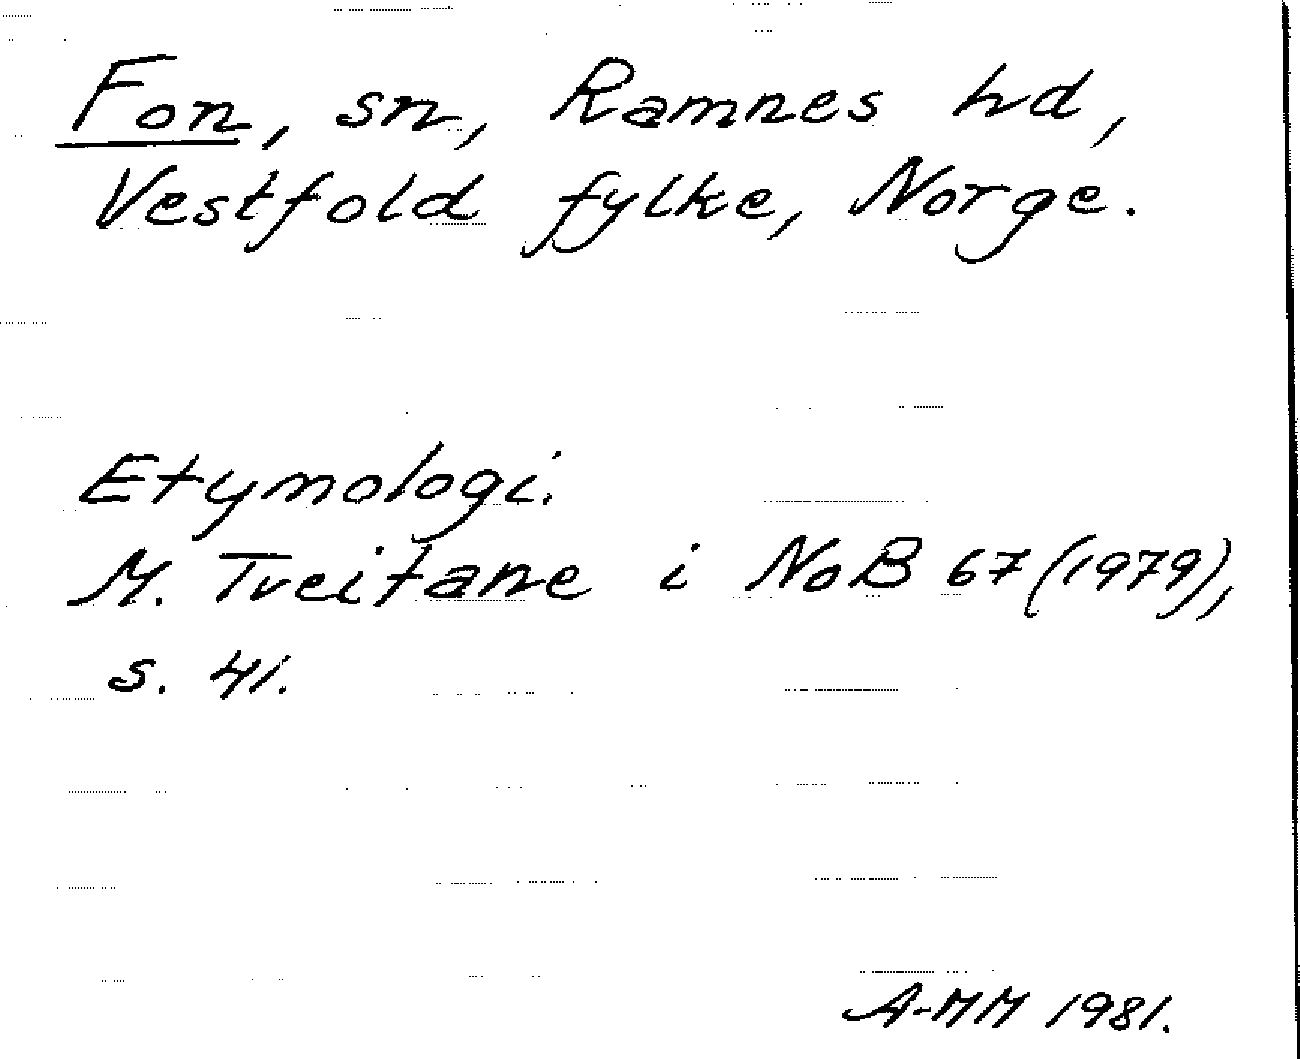 Fon, sn, Ramnes hd,
Vestfold fylke, Norge.
Etymologi.
M. Tveitane i NoB 67 (1979),
s. 41.
A-MM 1981.